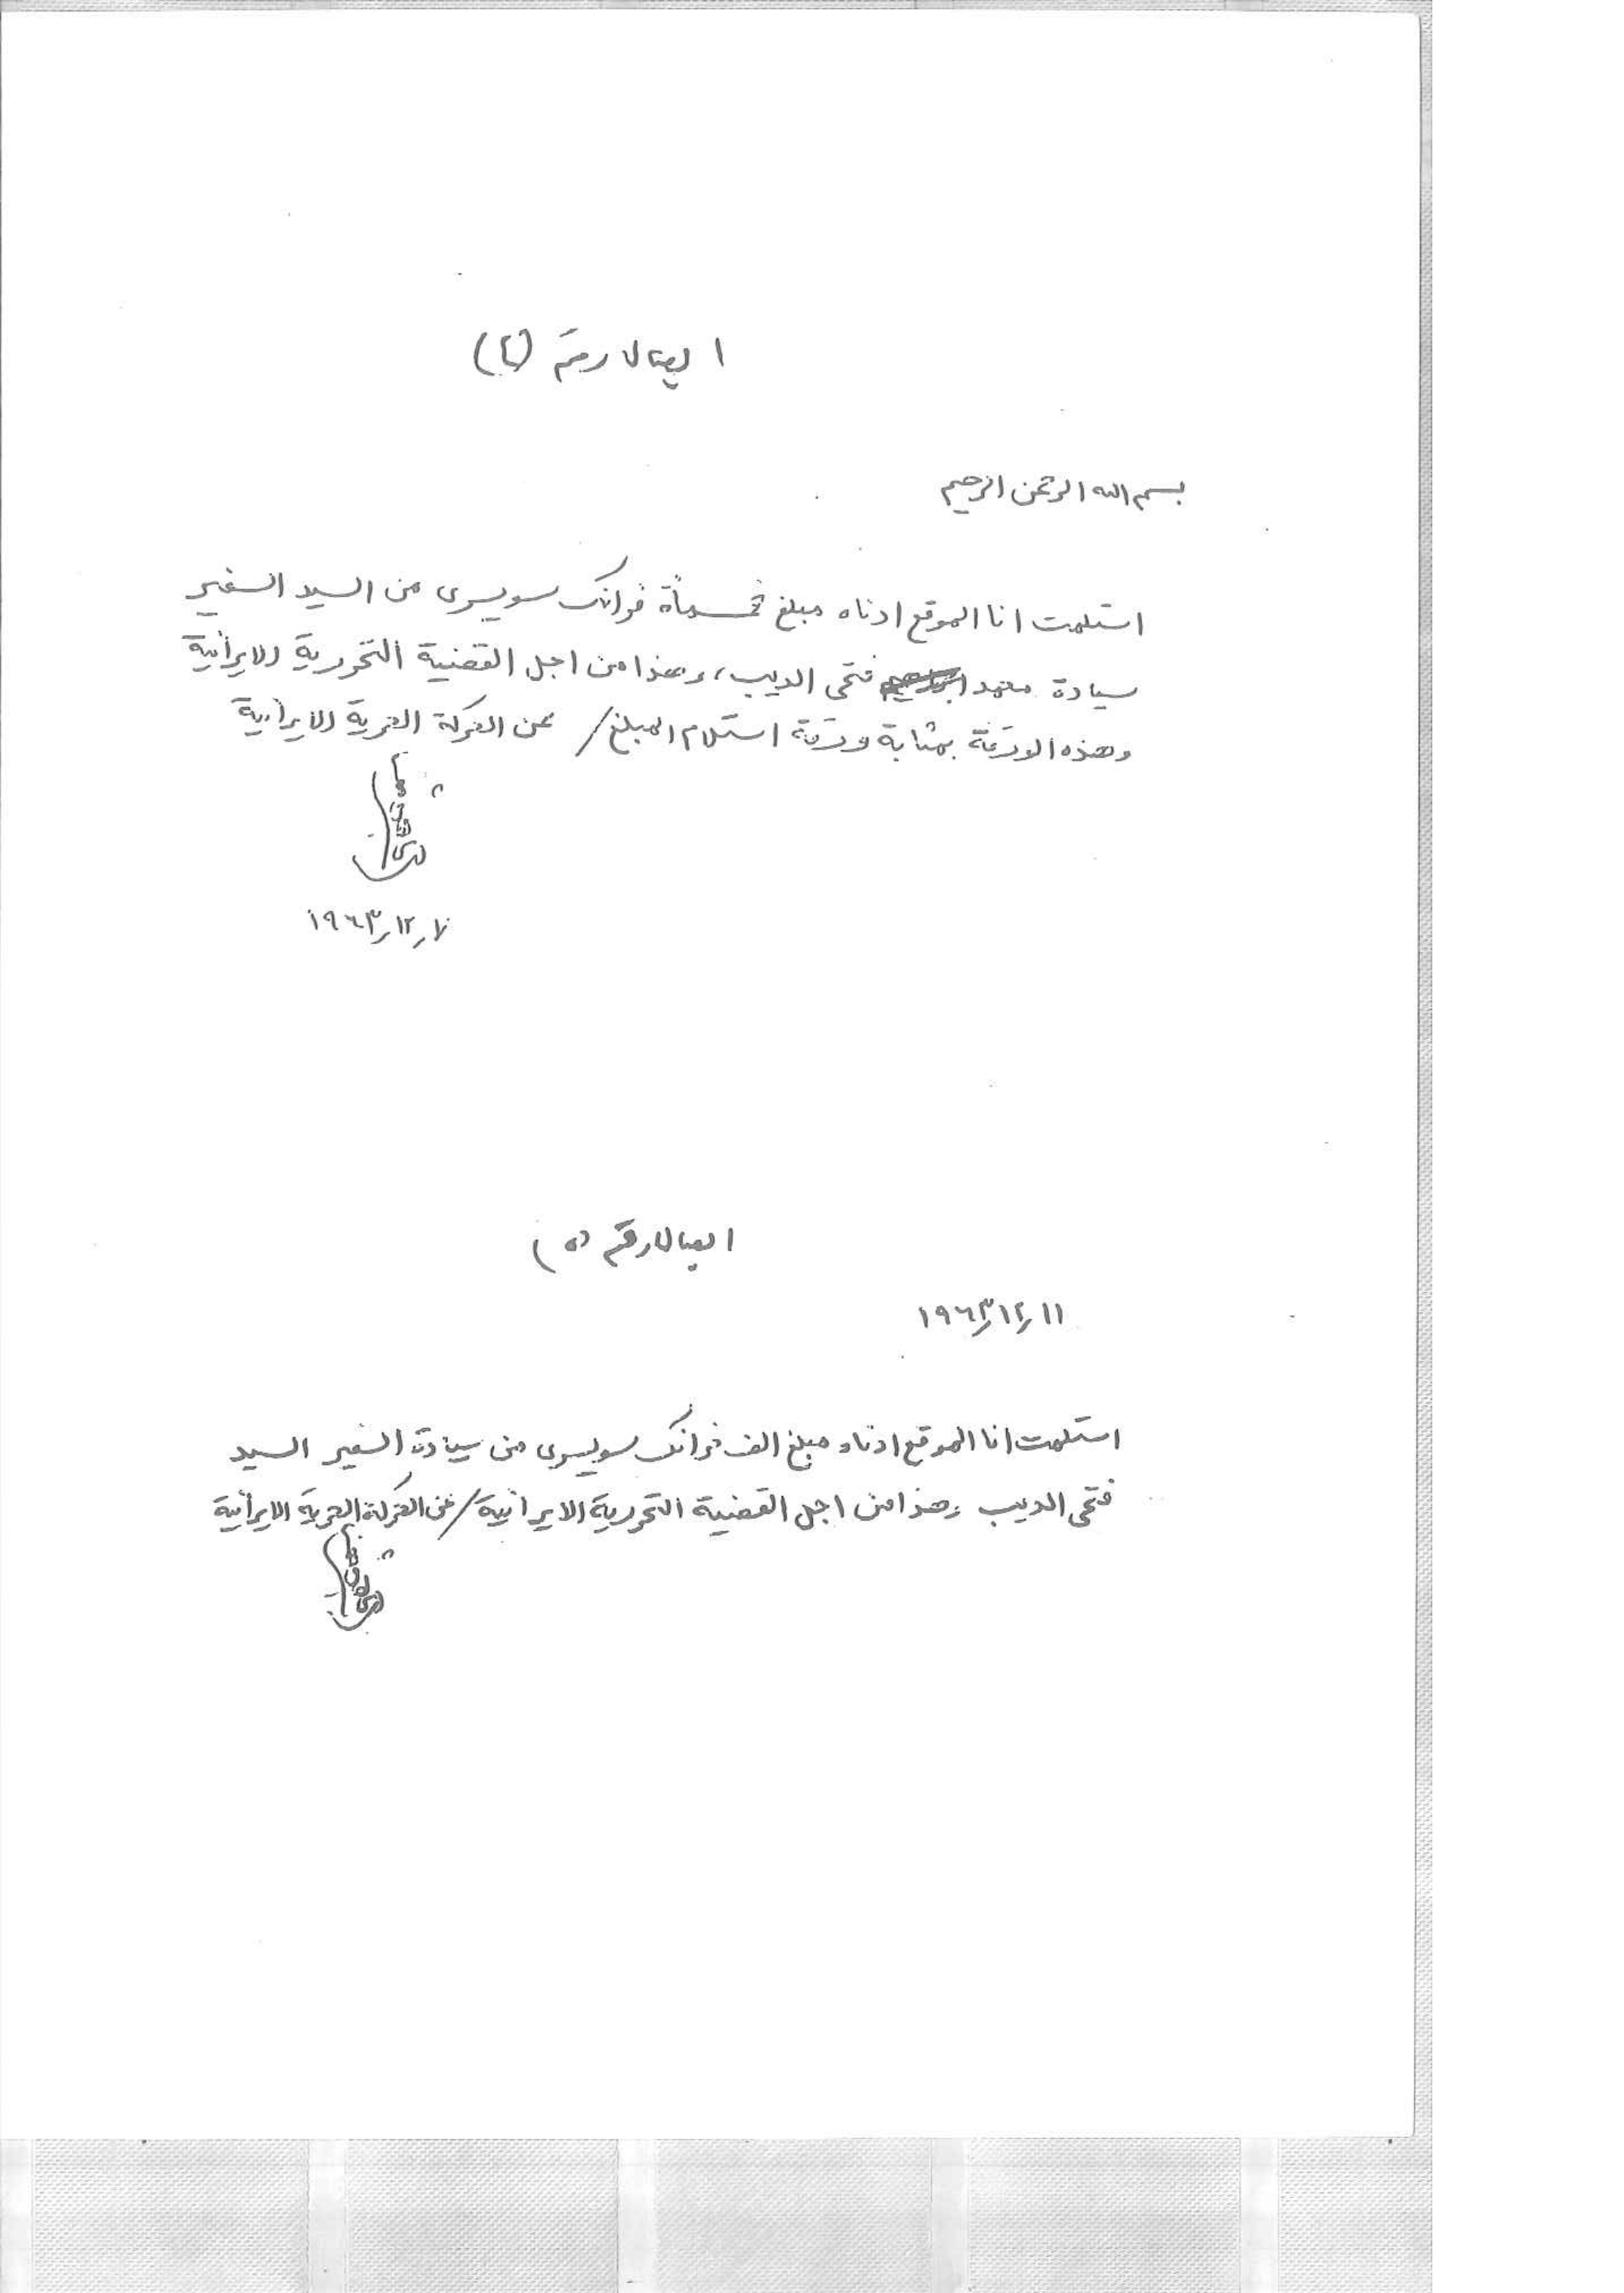 ايصال رقم (٤)
بسم الله الرحمن الرحيم
استلمت انا الموقع ادناه مبلغ خمسمأة فرانك سويسرى من السيد السفير
سيادة محمد فتحى الديب، وهذا من اجل القضية التحررية الايرانية
وهذه الورقة بمثابة ورقة استلام المبلغ / عن الحركة الحرية الايرانية
١٩٦٣٫١٢٫٧
ايصال رقم (٥)
١٩٦٣٫١٢٫١١
استلمت انا الموقع ادناه مبلغ الف فرانك سويسرى من سيادة السفير السيد
فتحى الديب وهذا من اجل القضية التحررية الايرانية / عن الحركة الحرية الايرانية